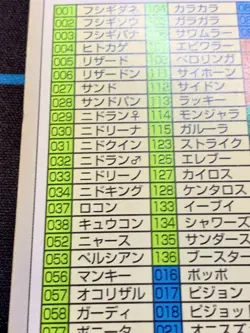 001 フシギダネ 104 カラカラ
002 フシギソウ ガラガラ
003 フシギバナ サワムラー
004 ヒトカゲ エビワラー
005 リザード 110 ベロリンガ
006 リザードン 111 サイホーン
027 サンド 112 サイドン
028 サンドパン 113 ラッキー
029 ニドラン♀ 114 モンジャラ
030 ニドリーナ 115 ガルーラ
031 ニドクイン 123 ストライク
032 ニドラン♂ 125 エレブー
033 ニドリーノ 127 カイロス
034 ニドキング 128 ケンタロス
037 ロコン 133 イーブイ
038 キュウコン 134 シャワーズ
052 ニャース 135 サンダース
053 ペルシアン 136 ブースター
056 マンキー 016 ポッポ
057 オコリザル 017 ピジョン
058 ガーディ 018 ピジョ
077 ポニータ 021 オニス